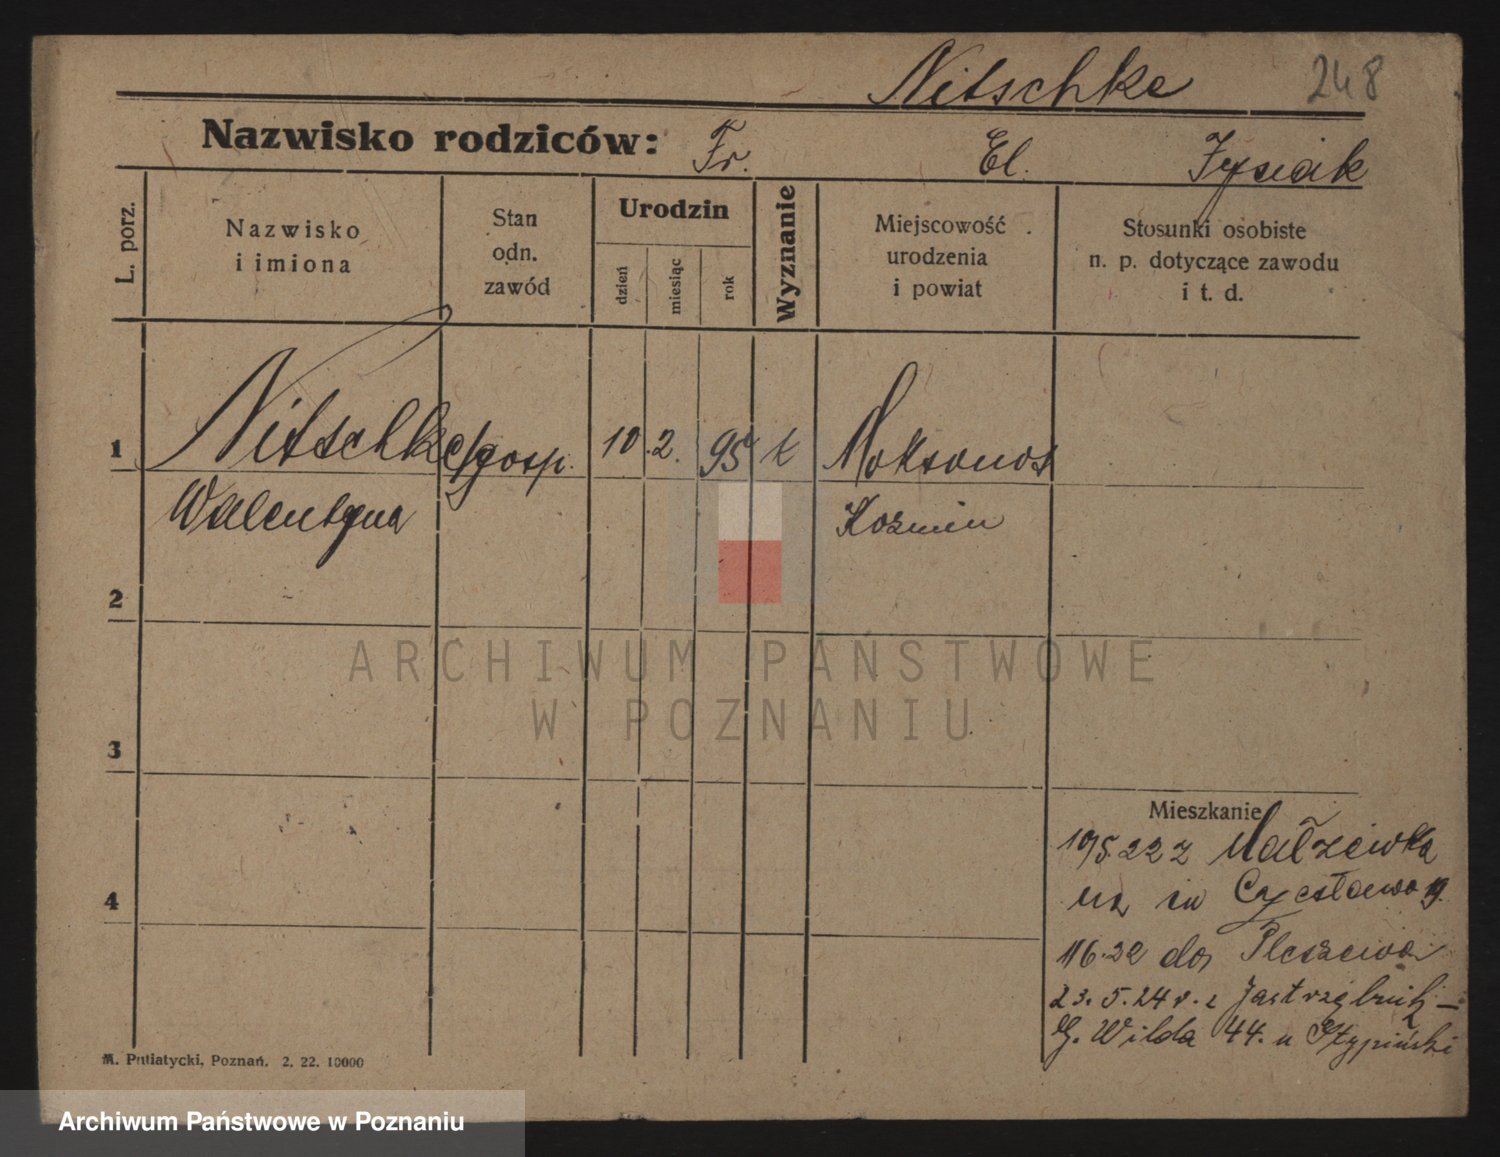 Nitschke 248
Nazwisko rodziców: Fr. El.
L. porz.
Nazwisko
i imiona
Stan
odn.
zawód
Urodzin
dzień
miesiąc
rok
Wyznanie
Miejscowość
urodzenia
i powiat
Stosunki osobiste
n. p. dotyczące zawodu
i t. d.
1 Nitschke gosp. 10. 2. 95 k
Walentyna Kozmin
2
3
4
ARCHIWUM PAŃSTWOWE
W POZNANIU
Mieszkanie
10/5.22 z
Czesława 19
11 6.22 do Pleszewa
23. 5. 24 r. z
G. Wilda 44. u
M. Putiatycki, Poznań. 2. 22. 10000
Archiwum Państwowe w Poznaniu